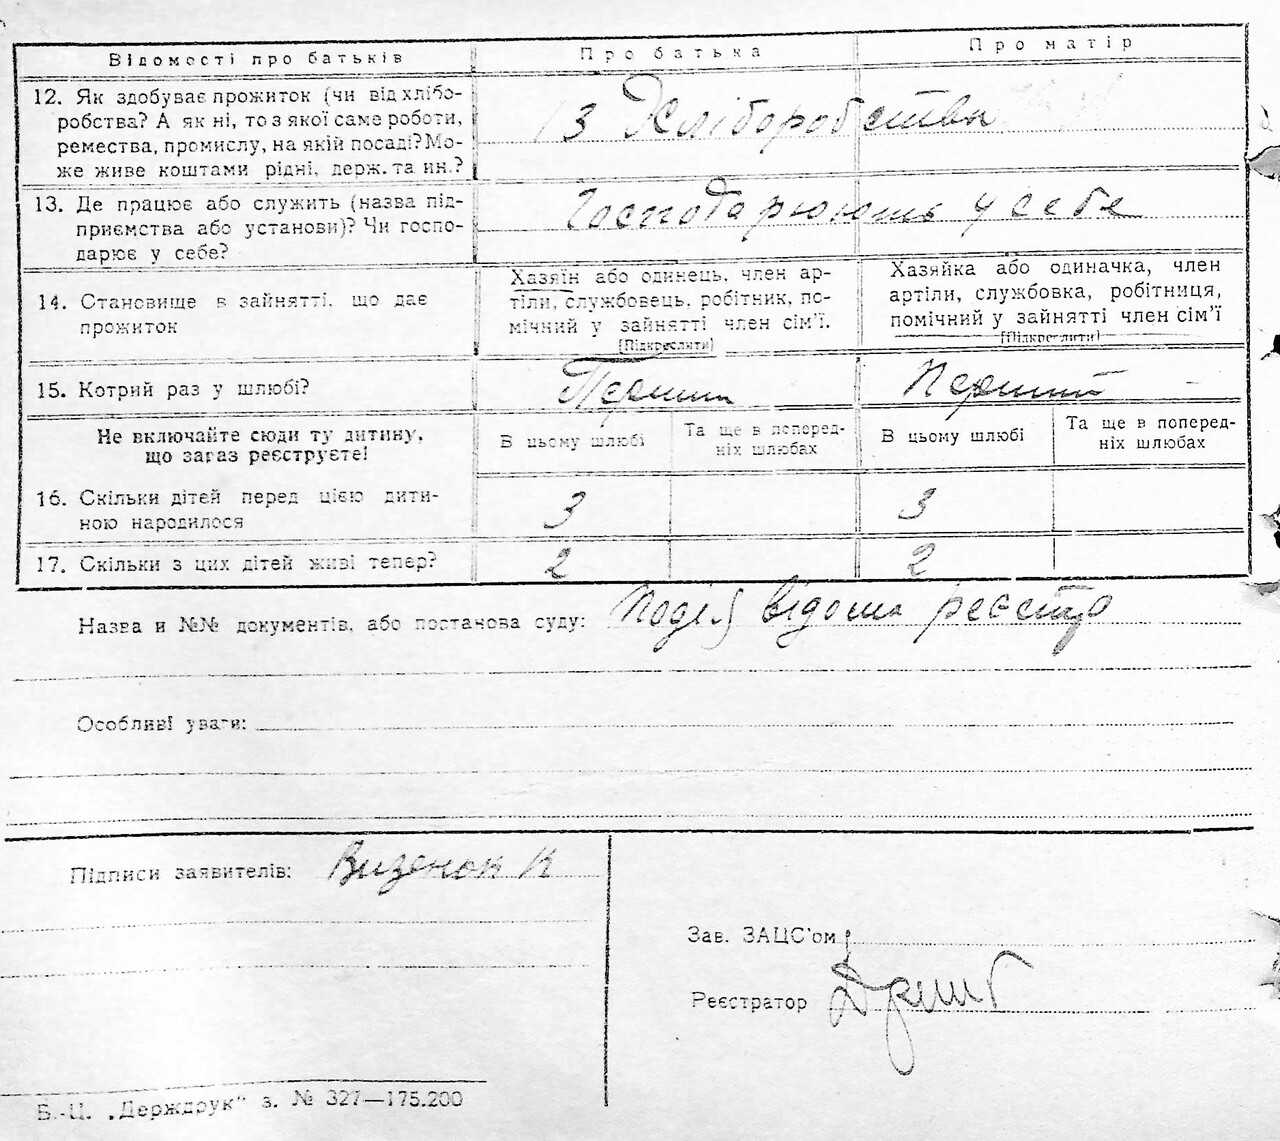 Відомості про батьків
Про батька
Про матір
12. Як здобуває прожиток (чи від хлібо-
робства? А як ні, то з якої саме роботи,
ремества, промислу, на якій посаді? Мо-
же живе коштами рідні, держ. та ин.?
З Хліборобства
13. Де працює або служить (назва під-
приємства або установи)? Чи госпо-
дарює у себе?
Господарюють у себе
14. Становище в зайнятті, що дає
прожиток
Хазяїн або одинець, член ар-
тіли, службовець, робітник, по-
мічний у зайнятті член сім'ї.
(Підкреслити)
Хазяйка або одиначка, член
артіли, службовка, робітниця,
помічний у зайнятті член сім'ї
(Підкреслити)
15. Котрий раз у шлюбі?
Перший
Перший
Не включайте сюди ту дитину,
що зараз реєструєте!
В цьому шлюбі
Та ще в поперед-
ніх шлюбах
В цьому шлюбі
Та ще в поперед-
ніх шлюбах
16. Скільки дітей перед цією дити-
ною народилося
3
3
17. Скільки з цих дітей живі тепер?
2
2
Назва и №№ документів, або постанова суду: Подія відома реєстр
Особливі уваги:
Підписи заявителів: Визенок К
Зав. ЗАЦС'ом
Реєстратор
Б.-Ц. „Держдрук" з. № 327—175.200